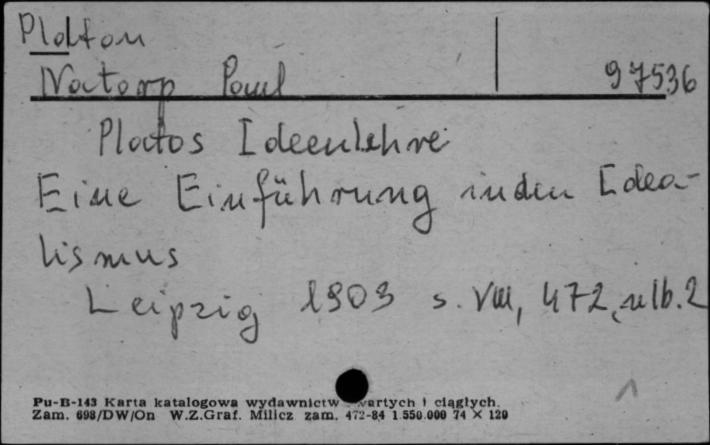 Platon
Natorp Paul 97536
Platos Ideenlehre
Eine Einführung in den Idea-
lismus
Leipzig 1903 s. VIII, 472, nlb. 2
Pu-B-143 Karta katalogowa wydawnictw zwartych i ciągłych.
Zam. 698/DW/On W.Z.Graf. Milicz zam. 472-84 1.550.000 74 × 120